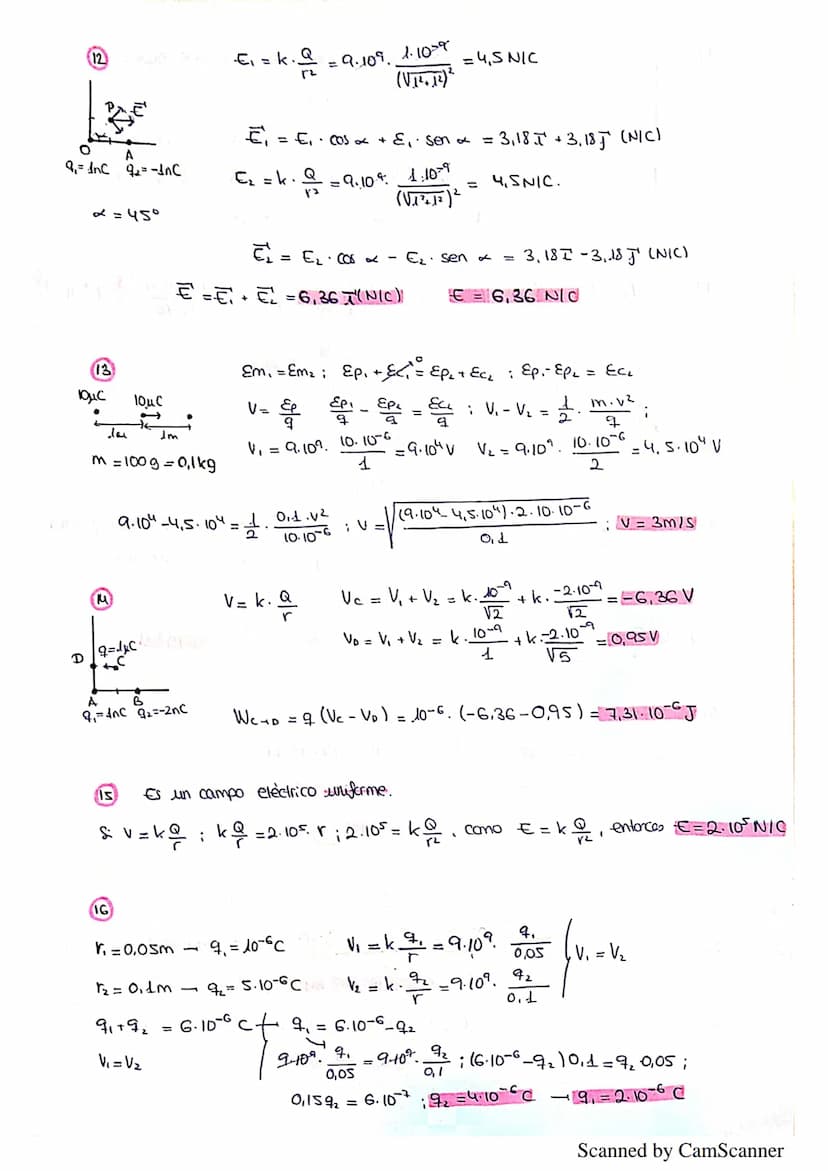 12
E₁ = k · Q/r² = 9·10⁹ · 1·10⁻⁹/(√1²+1²)² = 4,5 N/C
P E⃗
α
O A
q₁=1nC q₂=-1nC
α = 45º
E⃗₁ = E₁ · cos α + E₁ · sen α = 3,18 i⃗ + 3,18 j⃗ (N/C)
E₂ = k · Q/r² = 9·10⁹ · 1·10⁻⁹/(√1²+1²)² = 4,5 N/C.
E⃗₂ = E₂ · cos α - E₂ · sen α = 3,18 i⃗ - 3,18 j⃗ (N/C)
E⃗ = E⃗₁ + E⃗₂ = 6,36 i⃗ (N/C) E = 6,36 N/C
13
Em₁ = Em₂ ; Ep₁ + Ec₁⁰ = Ep₂ + Ec₂ ; Ep₁ - Ep₂ = Ec₂
10μC 10μC
1m 1m
m = 100g = 0,1 kg
V = Ep/q Ep₁/q - Ep₂/q = Ec₂/q ; V₁ - V₂ = 1/2 · m·v²/q ;
V₁ = 9·10⁹ · 10·10⁻⁶/1 = 9·10⁴ V V₂ = 9·10⁹ · 10·10⁻⁶/2 = 4,5·10⁴ V
9·10⁴ - 4,5·10⁴ = 1/2 · 0,1·v²/10·10⁻⁶ ; v = √(9·10⁴ - 4,5·10⁴)·2·10·10⁻⁶/0,1 ; v = 3m/s
14
V = k · Q/r Vc = V₁ + V₂ = k · 10⁻⁹/√2 + k · -2·10⁻⁹/√2 = -6,36 V
V_D = V₁ + V₂ = k · 10⁻⁹/1 + k · -2·10⁻⁹/√5 = 0,95 V
D q=1μC
C
A B
q₁=1nC q₂=-2nC
W_C→D = q (Vc - V_D) = 10⁻⁶ · (-6,36 - 0,95) = 7,31·10⁻⁶ J
15 Es un campo eléctrico uniforme.
Si V = k Q/r ; k Q/r = 2·10⁵ · r ; 2·10⁵ = k Q/r² , como E = k Q/r² , entonces E = 2·10⁵ N/C
16
r₁ = 0,05m → q₁ = 10⁻⁶ C V₁ = k q₁/r = 9·10⁹ · q₁/0,05
r₂ = 0,1m → q₂ = 5·10⁻⁶ C V₂ = k · q₂/r = 9·10⁹ · q₂/0,1 V₁ = V₂
q₁ + q₂ = 6·10⁻⁶ C q₁ = 6·10⁻⁶ - q₂
V₁ = V₂ 9·10⁹ · q₁/0,05 = 9·10⁹ · q₂/0,1 ; (6·10⁻⁶ - q₂) 0,1 = q₂ 0,05 ;
0,15 q₂ = 6·10⁻⁷ ; q₂ = 4·10⁻⁶ C → q₁ = 2·10⁻⁶ C
Scanned by CamScanner